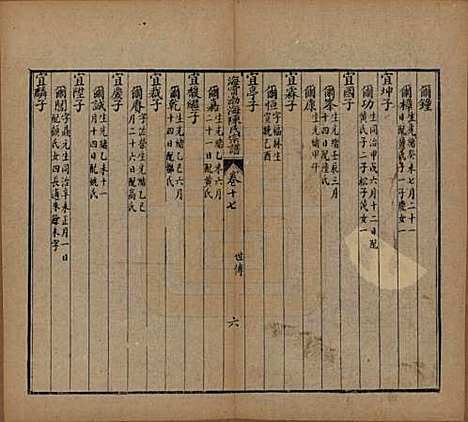 爾鍾
宜坤子
爾樟生光緒癸未七月二十一
日配陸氏子一子慶女一
爾功生同治甲戌六月十二日配
黃氏子二松子女一
宜國子
爾峯生光緒壬辰三月
十四日配陸氏
爾康生光緒甲午
宜霖子
爾恒字福林生
宣統己酉
宜亭子
海寧渤海陳氏宗譜
卷十七
世傳
六
爾嘉生光緒乙巳六月
二十一日配黃氏
宜馥繼子
爾乾生光緒乙巳六月
十四日配
宜栽子
爾壽字法榮生光緒乙巳
月二十六日配高氏
宜慶子
爾誠生光緒丁未
月十四日配姚氏
宜陞子
爾閏字鼎元生同治辛未正月一日
配顧氏女四長適朱
宜驎子